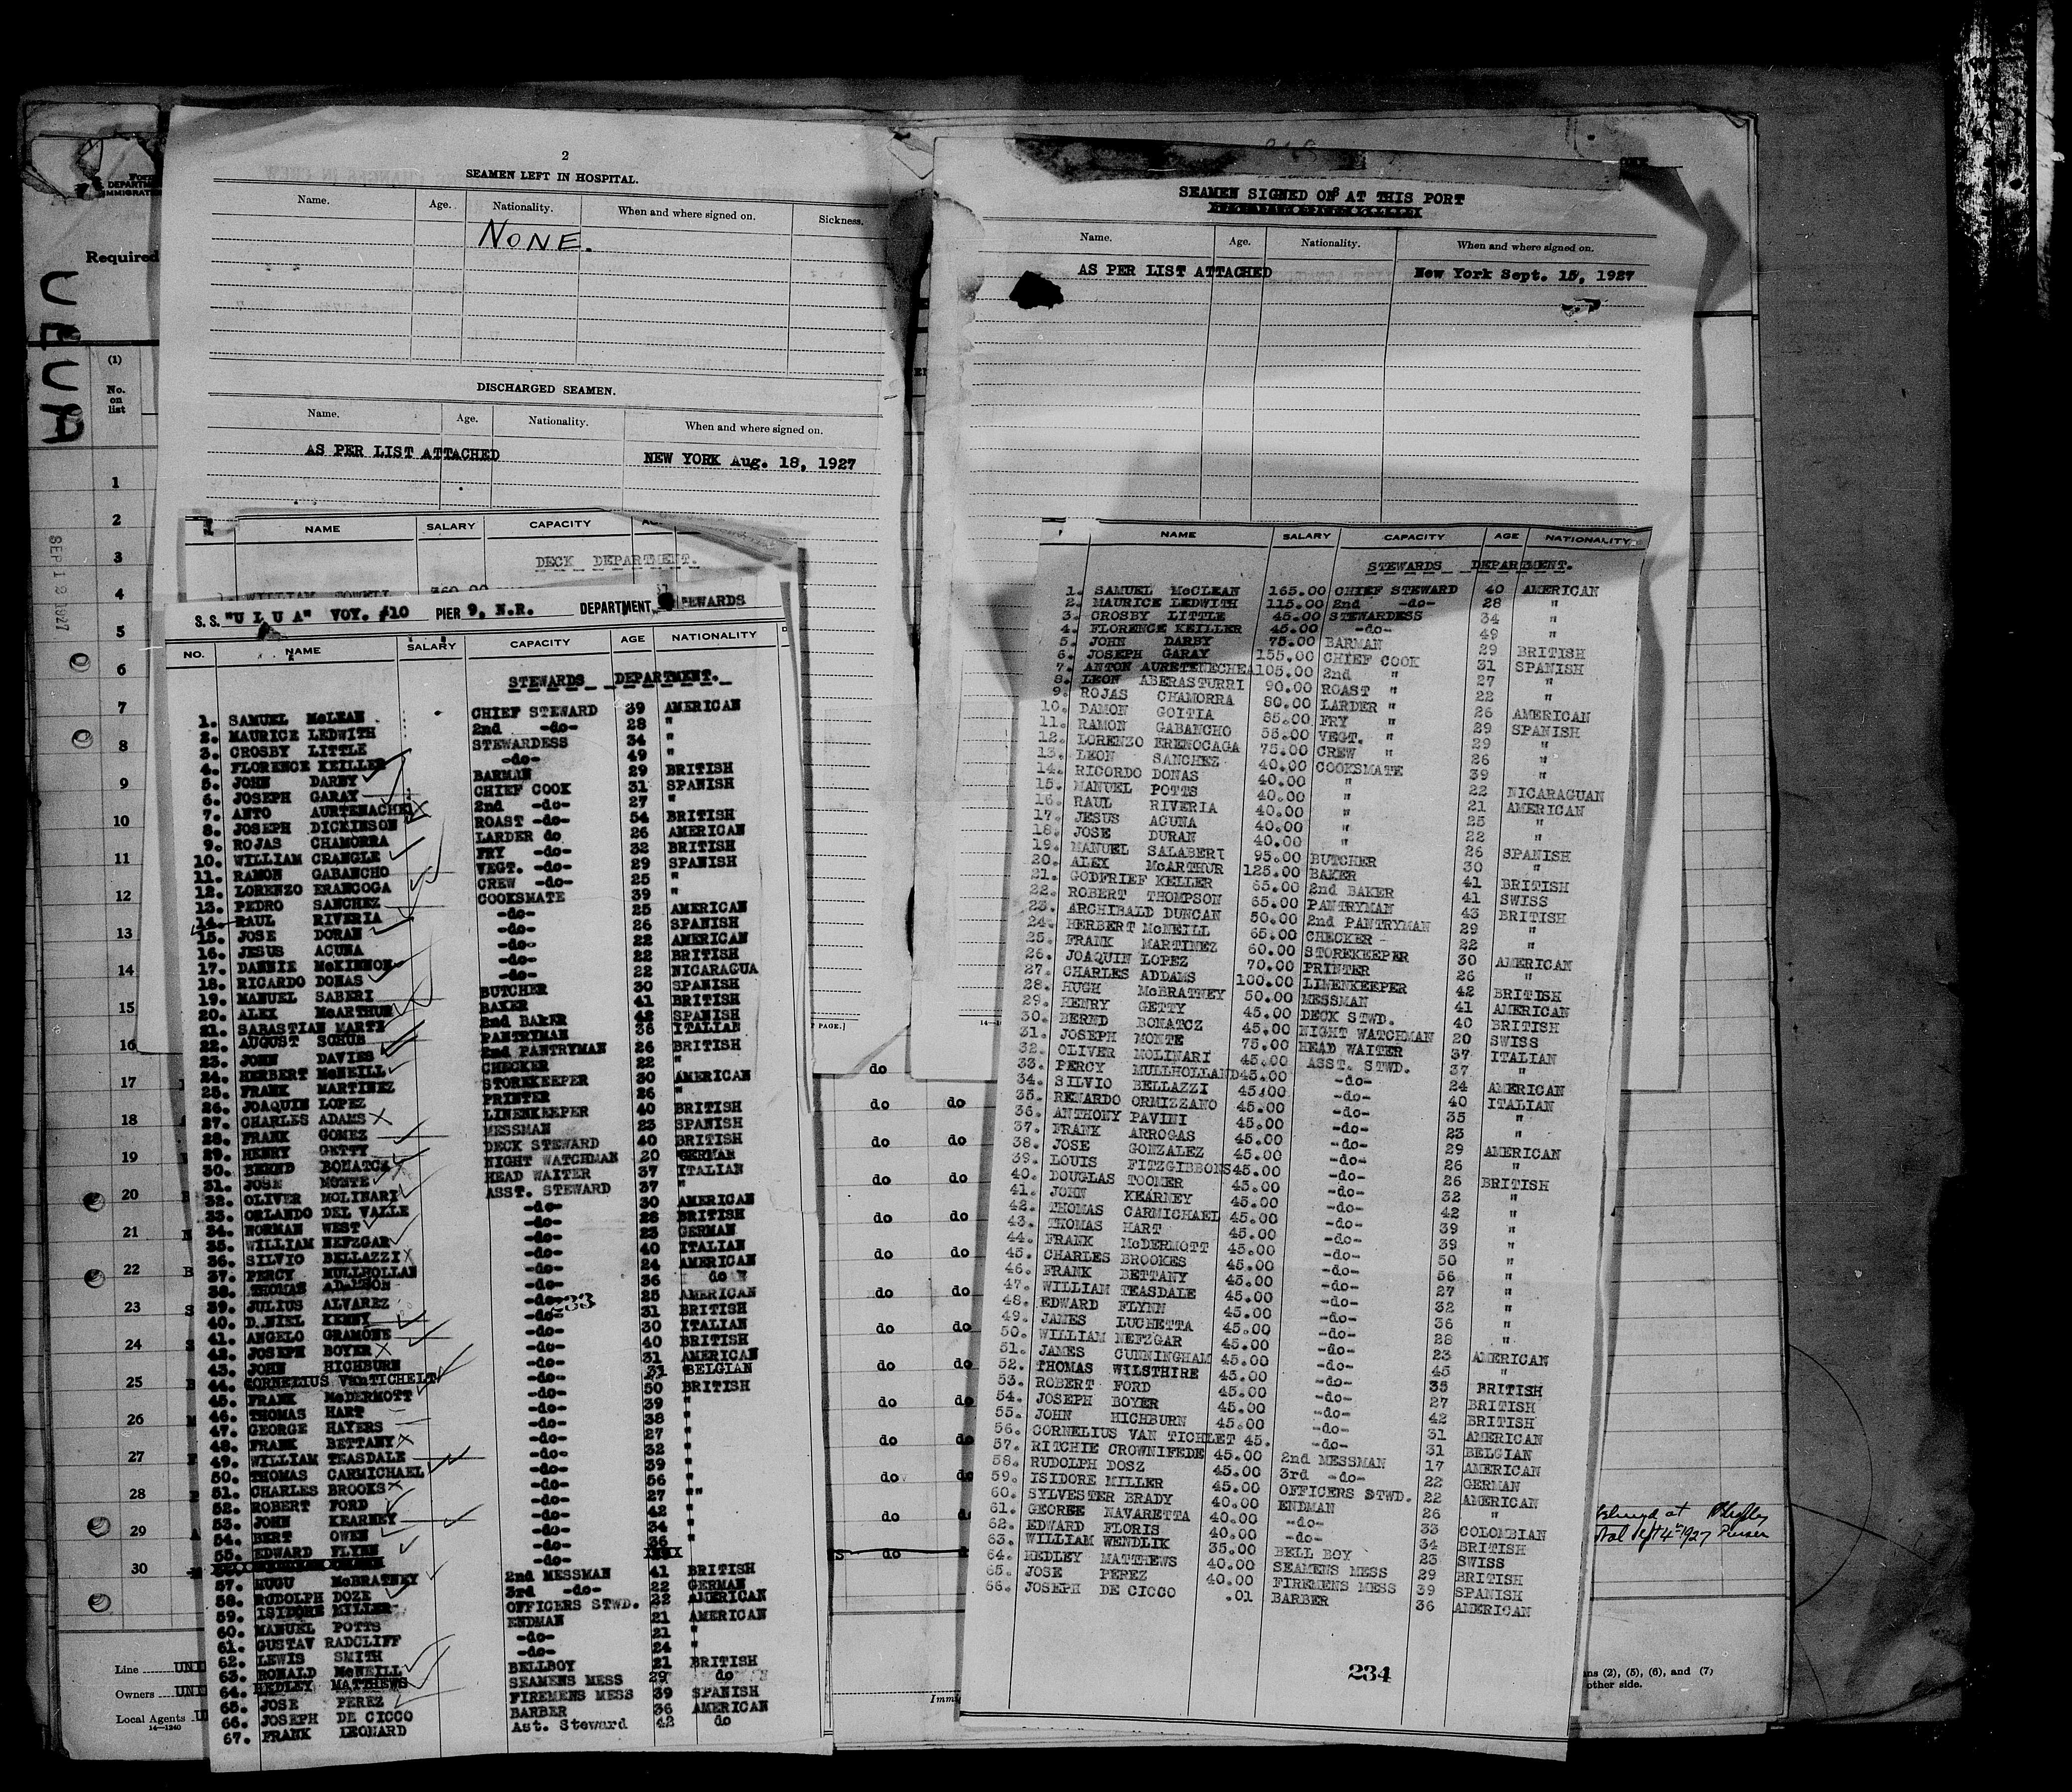 2
SEAMEN LEFT IN HOSPITAL.
Name. Age. Nationality. When and where signed on. Sickness.
NONE.
DISCHARGED SEAMEN.
Name. Age. Nationality. When and where signed on.
AS PER LIST ATTACHED NEW YORK Aug. 18, 1927
NAME SALARY CAPACITY
DECK DEPARTMENT.
S.S. "ULUA" VOY. #10 PIER 9, N.R. DEPARTMENT STEWARDS
NO. NAME SALARY CAPACITY AGE NATIONALITY
STEWARDS DEPARTMENT.
1. SAMUEL McLEAN CHIEF STEWARD 39 AMERICAN
2. MAURICE LEDWITH 2nd -do- 28 "
3. CROSBY LITTLE STEWARDESS 34 "
4. FLORENCE KEILLER -do- 49 "
5. JOHN DARBY BARMAN 29 BRITISH
6. JOSEPH GARAY CHIEF COOK 31 SPANISH
7. ANTO AURTENACHEA 2nd -do- 27 "
8. JOSEPH DICKINSON ROAST -do- 54 BRITISH
9. ROJAS CHAMORRA LARDER do 26 AMERICAN
10. WILLIAM CRANGLE FRY -do- 32 BRITISH
11. RAMON GABANCHO VEGT. -do- 29 SPANISH
12. LORENZO ERANCOGA CREW -do- 25 "
13. PEDRO SANCHEZ COOKSMATE 39 "
14. RAUL RIVERIA -do- 25 AMERICAN
15. JOSE DORAN -do- 26 SPANISH
16. JESUS ACUNA -do- 22 AMERICAN
17. DANNIE McKINNON -do- 22 BRITISH
18. RICARDO DONAS -do- 22 NICARAGUA
19. MANUEL SABERI BUTCHER 30 SPANISH
20. ALEX McARTHUR BAKER 41 BRITISH
21. SABASTIAN MARTI 2nd BAKER 42 SPANISH
22. AUGUST SCHUB PANTRYMAN 36 ITALIAN
23. JOHN DAVIES 2nd PANTRYMAN 26 BRITISH
24. HERBERT McNEILL CHECKER 22 "
25. FRANK MARTINEZ STOREKEEPER 30 AMERICAN
26. JOAQUIN LOPEZ PRINTER 26 "
27. CHARLES ADAMS LINENKEEPER 40 BRITISH
28. FRANK GOMEZ MESSMAN 23 SPANISH
29. HENRY GETTY DECK STEWARD 40 BRITISH
30. BERND BOMATCZ NIGHT WATCHMAN 20 GERMAN
31. JOSE MONTE HEAD WAITER 37 ITALIAN
32. OLIVER MOLINARI ASST. STEWARD 37 "
33. ORLANDO DEL VALLE -do- 30 AMERICAN
34. NORMAN WEST -do- 28 BRITISH
35. WILLIAM NEFZGAR -do- 23 GERMAN
36. SILVIO BELLAZZI -do- 40 ITALIAN
37. PERCY MULLHOLLAN -do- 24 AMERICAN
38. THOMAS ADAMSON -do- 36 do
39. JULIUS ALVAREZ -do- 25 AMERICAN
233
40. DANIEL KENNY -do- 31 BRITISH
41. ANGELO GRAMONE -do- 30 ITALIAN
42. JOSEPH BOYER -do- 40 BRITISH
43. JOHN HICHBURN -do- 31 AMERICAN
44. CORNELIUS VanTICHELT -do- 31 BELGIAN
45. FRANK McDERMOTT -do- 50 BRITISH
46. THOMAS HART -do- 39 "
47. GEORGE HAYERS -do- 38 "
48. FRANK BETTANY -do- 27 "
49. WILLIAM TEASDALE -do- 32 "
50. THOMAS CARMICHAEL -do- 39 "
51. CHARLES BROOKS -do- 56 "
52. ROBERT FORD -do- 27 "
53. JOHN KEARNEY -do- 42 "
54. BERT OWEN -do- 34 "
55. EDWARD FLYNN -do- 36 "
57. HUGU McBRATNEY 2nd MESSMAN 41 BRITISH
58. RUDOLPH DOZE 3rd -do- 22 GERMAN
59. ISIDORE MILLER OFFICERS STWD. 22 AMERICAN
60. MANUEL POTTS ENDMAN 21 AMERICAN
61. GUSTAV RADCLIFF -do- 21 "
62. LEWIS SMITH -do- 24 "
63. RONALD McNEILL BELLBOY 21 BRITISH
64. HEDLEY MATTHEWS SEAMENS MESS 29 do
65. JOSE PEREZ FIREMENS MESS 39 SPANISH
66. JOSEPH DE CICCO BARBER 36 AMERICAN
67. FRANK LEONARD Ast. Steward 42 do
SEAMEN SIGNED ON AT THIS PORT
Name. Age. Nationality. When and where signed on.
AS PER LIST ATTACHED New York Sept. 15, 1927
NAME SALARY CAPACITY AGE NATIONALITY
STEWARDS DEPARTMENT.
1. SAMUEL McCLEAN 165.00 CHIEF STEWARD 40 AMERICAN
2. MAURICE LEDWITH 115.00 2nd -do- 28 "
3. CROSBY LITTLE 45.00 STEWARDESS 34 "
4. FLORENCE KEILLER 45.00 -do- 49 "
5. JOHN DARBY 75.00 BARMAN 29 BRITISH
6. JOSEPH GARAY 155.00 CHIEF COOK 31 SPANISH
7. ANTON AURETENECHEA 105.00 2nd " 27 "
8. LEON ABERASTURRI 90.00 ROAST " 22 "
9. ROJAS CHAMORRA 80.00 LARDER " 26 AMERICAN
10. DAMON GOITIA 85.00 FRY " 29 SPANISH
11. RAMON GABANCHO 55.00 VEGT. " 29 "
12. LORENZO ERENOCAGA 75.00 CREW " 26 "
13. LEON SANCHEZ 40.00 COOKSMATE 39 "
14. RICORDO DONAS 40.00 " 22 NICARAGUAN
15. MANUEL POTTS 40.00 " 21 AMERICAN
16. RAUL RIVERIA 40.00 " 25 "
17. JESUS ACUNA 40.00 " 22 "
18. JOSE DURAN 40.00 " 26 SPANISH
19. MANUEL SALABERI 95.00 BUTCHER 30 "
20. ALEX McARTHUR 125.00 BAKER 41 BRITISH
21. GODFRIEF KELLER 65.00 2nd BAKER 41 SWISS
22. ROBERT THOMPSON 65.00 PANTRYMAN 43 BRITISH
23. ARCHIBALD DUNCAN 50.00 2nd PANTRYMAN 29 "
24. HERBERT McNEILL 65.00 CHECKER - 22 "
25. FRANK MARTINEZ 60.00 STOREKEEPER 30 AMERICAN
26. JOAQUIN LOPEZ 70.00 PRINTER 26 "
27. CHARLES ADDAMS 100.00 LINENKEEPER 42 BRITISH
28. HUGH McBRATNEY 50.00 MESSMAN 41 AMERICAN
29. HENRY GETTY 45.00 DECK STWD. 40 BRITISH
30. BERND BOMATCZ 45.00 NIGHT WATCHMAN 20 SWISS
31. JOSEPH MONTE 75.00 HEAD WAITER 37 ITALIAN
32. OLIVER MOLINARI 45.00 ASST. STWD. 37 "
33. PERCY MULLHOLLAND 45.00 -do- 24 AMERICAN
34. SILVIO BELLAZZI 45.00 -do- 40 ITALIAN
35. RENARDO ORMIZZANO 45.00 -do- 35 "
36. ANTHONY PAVINI 45.00 -do- 23 "
37. FRANK ARROGAS 45.00 -do- 29 AMERICAN
38. JOSE GONZALEZ 45.00 -do- 26 "
39. LOUIS FITZGIBBONS 45.00 -do- 26 BRITISH
40. DOUGLAS TOOMER 45.00 -do- 32 "
41. JOHN KEARNEY 45.00 -do- 42 "
42. THOMAS CARMICHAEL 45.00 -do- 39 "
43. THOMAS HART 45.00 -do- 39 "
44. FRANK McDERMOTT 45.00 -do- 50 "
45. CHARLES BROOKES 45.00 -do- 56 "
46. FRANK BETTANY 45.00 -do- 27 "
47. WILLIAM TEASDALE 45.00 -do- 32 "
48. EDWARD FLYNN 45.00 -do- 36 "
49. JAMES LUCHETTA 45.00 -do- 28 "
50. WILLIAM NEFZGAR 45.00 -do- 23 AMERICAN
51. JAMES CUNNINGHAM 45.00 -do- 45 "
52. THOMAS WILSTHIRE 45.00 -do- 35 BRITISH
53. ROBERT FORD 45.00 -do- 27 BRITISH
54. JOSEPH BOYER 45.00 -do- 42 BRITISH
55. JOHN HICHBURN 45.00 -do- 31 AMERICAN
56. CORNELIUS VAN TICHLET 45. -do- 31 BELGIAN
57. RITCHIE CROWNIFEDE 45.00 2nd MESSMAN 17 AMERICAN
58. RUDOLPH DOSZ 45.00 3rd -do- 22 GERMAN
59. ISIDORE MILLER 45.00 OFFICERS STWD. 22 AMERICAN
60. SYLVESTER BRADY 40.00 ENDMAN 26 "
61. GEORGE NAVARETTA 40.00 -do- 33 COLOMBIAN
62. EDWARD FLORIS 40.00 -do- 34 BRITISH
63. WILLIAM WENDLIK 35.00 BELL BOY 23 SWISS
64. HEDLEY MATTHEWS 40.00 SEAMENS MESS 29 BRITISH
65. JOSE PEREZ 40.00 FIREMENS MESS 39 SPANISH
66. JOSEPH DE CICCO .01 BARBER 36 AMERICAN
234
Required
ULUA
SEP 12 1927
(1)
No. on list
1
2
3
4
5
6
7
8
9
10
11
12
13
14
15
16
17
18
19
20
21
22
23
24
25
26
27
28
29
30
do
do do
do do
do do
do do
do do
do do
do do
do do
do do
do do
do do
do do
do
Line
Owners
Local Agents
14—1240
PAGE.]
(2), (5), (6), and (7)
other side.